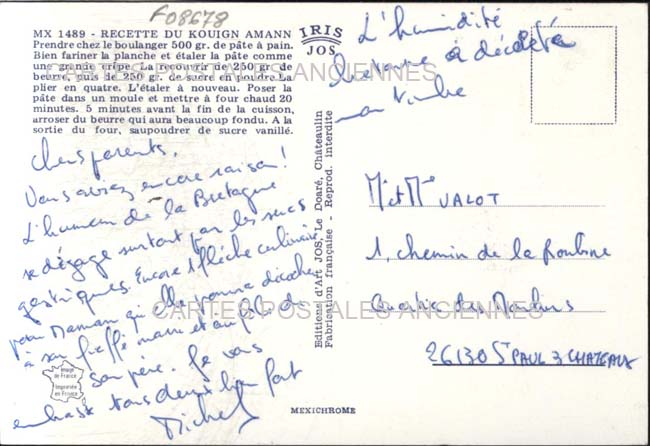 F08678
MX 1489 - RECETTE DU KOUIGN AMANN
Prendre chez le boulanger 500 gr. de pâte à pain.
Bien fariner la planche et étaler la pâte comme
une grande crêpe. La recouvrir de 250 gr. de
beurre, puis de 250 gr. de sucre en poudre. La
plier en quatre. L'étaler à nouveau. Poser la
pâte dans un moule et mettre à four chaud 20
minutes. 5 minutes avant la fin de la cuisson,
arroser du beurre qui aura beaucoup fondu. A la
sortie du four, saupoudrer de sucre vanillé.
IRIS
JOS
L'humidité
bretonne a décollé
mon timbre
Chers parents,
Vous aviez encore raison !
L'humeur de la Bretagne
se dégage surtout par les sucs
gastriques. Encore 1 flèche culinaire
pour Maman qu'elle pourra décocher
à son mari et au de
son père. Je vous
embrasse tous deux bien fort
Michel
Editions d'Art JOS, Le Doaré, Châteaulin
Fabrication française - Reprod. Interdite
Mr et Mme VALOT
1, chemin de la
Quartier des
26130 St PAUL 3 CHATEAUX
Image
de France
Imprimée
en France
MEXICHROME
CARTES POSTALES ANCIENNES
CARTES POSTALES ANCIENNES